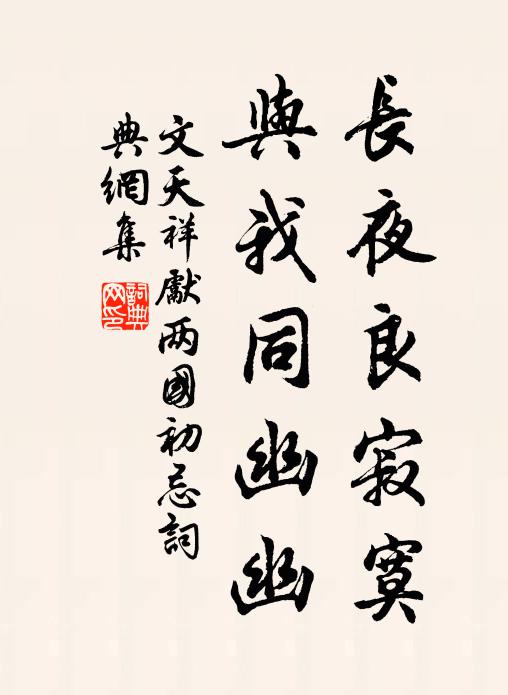 長夜良寂寞
與我同幽幽
文天祥獻两國初忌詞
典網集
詞典网印